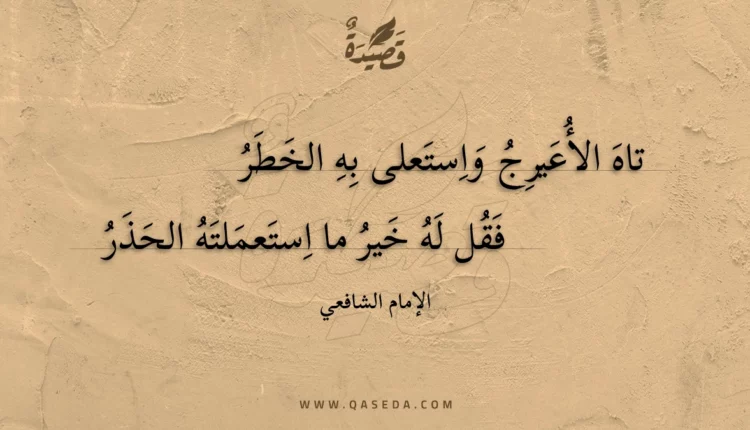 قَصِيدَةٌ
تاهَ الأُعَيرِجُ وَاِستَعلى بِهِ الخَطَرُ
فَقُل لَهُ خَيرُ ما اِستَعمَلتَهُ الحَذَرُ
الإمام الشافعي
WWW.QASEDA.COM